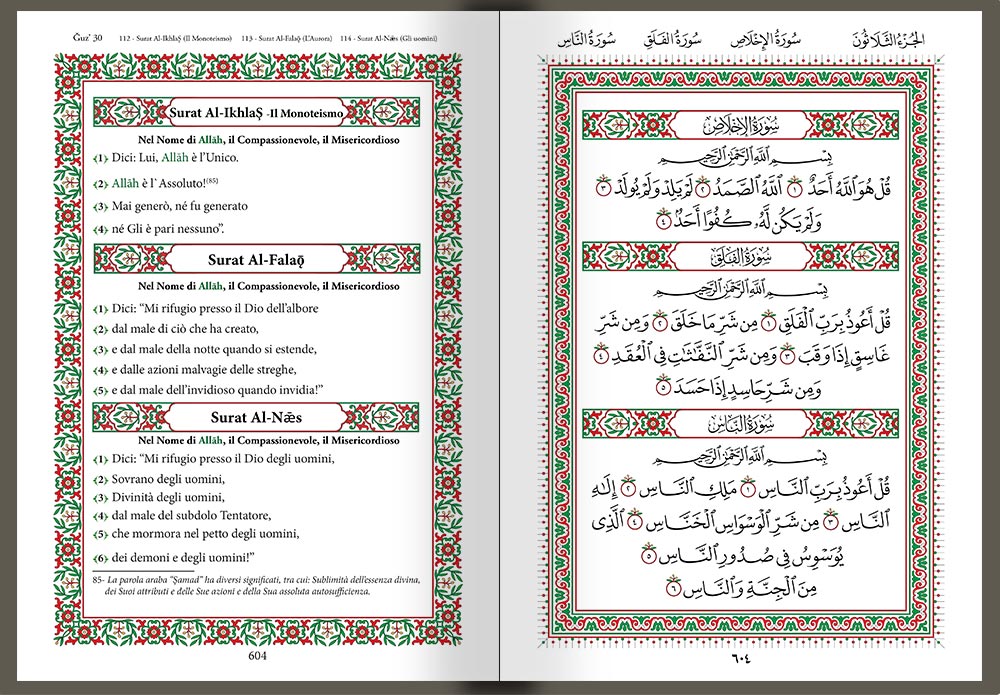 Ğuz' 30 112 - Surat Al-IkhlaŞ (Il Monoteismo) 113 - Surat Al-Falaq̄ (L'Aurora) 114 - Surat Al-Nǣs (Gli uomini)
Surat Al-IkhlaŞ -Il Monoteismo
Nel Nome di Allāh, il Compassionevole, il Misericordioso
(1) Dici: Lui, Allāh è l'Unico.
(2) Allāh è l'Assoluto!(85)
(3) Mai generò, né fu generato
(4) né Gli è pari nessuno”.
Surat Al-Falaq̄
Nel Nome di Allāh, il Compassionevole, il Misericordioso
(1) Dici: “Mi rifugio presso il Dio dell'albore
(2) dal male di ciò che ha creato,
(3) e dal male della notte quando si estende,
(4) e dalle azioni malvagie delle streghe,
(5) e dal male dell'invidioso quando invidia!”
Surat Al-Nǣs
Nel Nome di Allāh, il Compassionevole, il Misericordioso
(1) Dici: “Mi rifugio presso il Dio degli uomini,
(2) Sovrano degli uomini,
(3) Divinità degli uomini,
(4) dal male del subdolo Tentatore,
(5) che mormora nel petto degli uomini,
(6) dei demoni e degli uomini!”
85- La parola araba “Şamad” ha diversi significati, tra cui: Sublimità dell'essenza divina,
dei Suoi attributi e delle Sue azioni e della Sua assoluta autosufficienza.
604
الجزء الثلاثون سورة الإخلاص سورة الفلق سورة الناس
سُورَةُ الإِخْلَاصِ
بِسْمِ اللَّهِ الرَّحْمَٰنِ الرَّحِيمِ
قُلْ هُوَ اللَّهُ أَحَدٌ ١ اللَّهُ الصَّمَدُ ٢ لَمْ يَلِدْ وَلَمْ يُولَدْ ٣
وَلَمْ يَكُن لَّهُۥ كُفُوًا أَحَدٌۢ ٤
سُورَةُ الفَلَقِ
بِسْمِ اللَّهِ الرَّحْمَٰنِ الرَّحِيمِ
قُلْ أَعُوذُ بِرَبِّ الْفَلَقِ ١ مِن شَرِّ مَا خَلَقَ ٢ وَمِن شَرِّ
غَاسِقٍ إِذَا وَقَبَ ٣ وَمِن شَرِّ النَّفَّٰثَٰتِ فِى الْعُقَدِ ٤
وَمِن شَرِّ حَاسِدٍ إِذَا حَسَدَ ٥
سُورَةُ النَّاسِ
بِسْمِ اللَّهِ الرَّحْمَٰنِ الرَّحِيمِ
قُلْ أَعُوذُ بِرَبِّ النَّاسِ ١ مَلِكِ النَّاسِ ٢ إِلَٰهِ
النَّاسِ ٣ مِن شَرِّ الْوَسْوَاسِ الْخَنَّاسِ ٤ الَّذِى
يُوَسْوِسُ فِى صُدُورِ النَّاسِ ٥
مِنَ الْجِنَّةِ وَالنَّاسِ ٦
٦٠٤